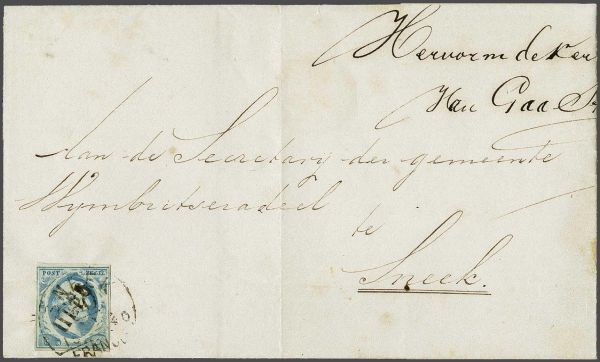 Hervormde Ker
Van Gaast
Aan de Secretary der gemeente
Wymbritseradeel
te
Sneek.
POST ZEGEL
FRANCO